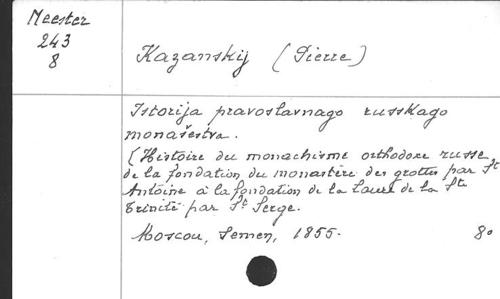 Meester
243
8
Kazanskij (Pierre)
Istorija pravoslavnago russkago
monašestva.
(Histoire du monachisme orthodoxe russe
de la fondation du monastère des grottes par St
Antoine à la fondation de la Laure de la Ste
Trinité par St Serge.
Moscou, Semen, 1855. 8o